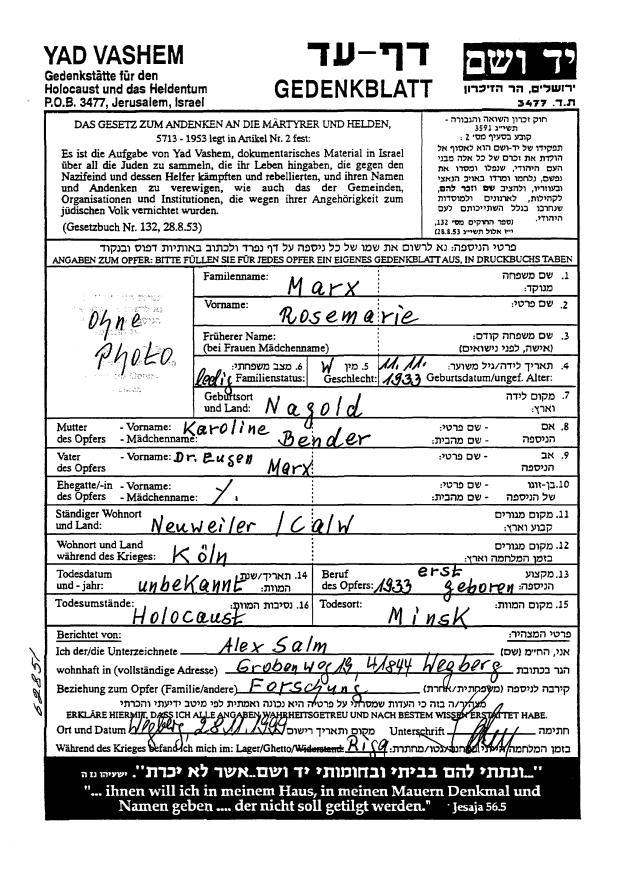 YAD VASHEM
Gedenkstätte für den
Holocaust und das Heldentum
P.O.B. 3477, Jerusalem, Israel
דף-עד
GEDENKBLATT
יד ושם
ירושלים, הר הזיכרון
ת.ד. 3477
DAS GESETZ ZUM ANDENKEN AN DIE MÄRTYRER UND HELDEN,
5713 - 1953 legt in Artikel Nr. 2 fest:
Es ist die Aufgabe von Yad Vashem, dokumentarisches Material in Israel
über all die Juden zu sammeln, die ihr Leben hingaben, die gegen den
Nazifeind und dessen Helfer kämpften und rebellierten, und ihren Namen
und Andenken zu verewigen, wie auch das der Gemeinden,
Organisationen und Institutionen, die wegen ihrer Angehörigkeit zum
jüdischen Volk vernichtet wurden.
(Gesetzbuch Nr. 132, 28.8.53)
חוק זכרון השואה והגבורה -
תשי״ג 3591
קובע בסעיף מס׳ 2 :
תפקידו של יד-ושם הוא לאסוף אל
המולדת את זכרם של כל אלה מבני
העם היהודי, שנפלו ומסרו את
נפשם, נלחמו ומרדו באויב הנאצי
ובעוזריו, ולהציב שם וזכר להם,
לקהילות, לארגונים ולמוסדות
שנחרבו בגלל השתייכותם לעם
היהודי.
(ספר החוקים מס׳ 132,
י״ז אלול תשי״ג 28.8.53)
פרטי הניספה: נא לרשום את שמו של כל ניספה על דף נפרד ולכתוב באותיות דפוס ובנקוד
ANGABEN ZUM OPFER: BITTE FÜLLEN SIE FÜR JEDES OPFER EIN EIGENES GEDENKBLATT AUS, IN DRUCKBUCHS TABEN
Ohne
Photo
Familienname: Marx 1. שם משפחה
מנוקד:
Vorname: Rosemarie 2. שם פרטי:
Früherer Name:
(bei Frauen Mädchenname)
3. שם משפחה קודם:
(אישה, לפני נישואים)
ledig Familienstatus: 6. מצב משפחתי:
W Geschlecht: 5. מין
11.11.1933 Geburtsdatum/ungef. Alter: 4. תאריך לידה/גיל משוער:
Geburtsort
und Land: Nagold 7. מקום לידה
וארץ:
Mutter
des Opfers
- Vorname: Karoline - שם פרטי: 8. אם
- Mädchenname: Bender - שם מהבית: הניספה
Vater
des Opfers
- Vorname: Dr. Eugen - שם פרטי: 9. אב
Marx הניספה
Ehegatte/-in
des Opfers
- Vorname: - שם פרטי: 10. בן-זוגו
- Mädchenname: - שם מהבית: של הניספה
Ständiger Wohnort
und Land: Neuweiler / Calw 11. מקום מגורים
קבוע וארץ:
Wohnort und Land
während des Krieges: Köln 12. מקום מגורים
בזמן המלחמה וארץ:
Todesdatum
und - jahr: unbekannt 14. תאריך/שנת
המוות:
Beruf
des Opfers: erst
1933 geboren 13. מקצוע
הניספה:
Todesumstände: Holocaust 16. נסיבות המוות:
Todesort: Minsk 15. מקום המוות:
Berichtet von: פרטי המצהיר:
Ich der/die Unterzeichnete Alex Salm אני, החי״מ (שם)
wohnhaft in (vollständige Adresse) Grobenweg 19, 41844 Wegberg הגר בכתובת
Beziehung zum Opfer (Familie/andere) Forschung קירבה לניספה (משפחתית/אחרת)
מצהיר/ה בזה כי העדות שמסרתי על פרטיה היא נכונה ואמתית לפי מיטב ידיעתי והכרתי
ERKLÄRE HIERMIT, DASS ICH ALLE ANGABEN WAHRHEITSGETREU UND NACH BESTEM WISSEN ERSTATTET HABE.
Ort und Datum Wegberg, 28.11.1999 מקום ותאריך רישום Unterschrift חתימה
Während des Krieges befand ich mich im: Lager/Ghetto/Widerstand: Riga בזמן המלחמה
"...ונתתי להם בביתי ובחומותי יד ושם...אשר לא יכרת". ישעיהו נו ה
"... ihnen will ich in meinem Haus, in meinen Mauern Denkmal und
Namen geben .... der nicht soll getilgt werden." Jesaja 56.5